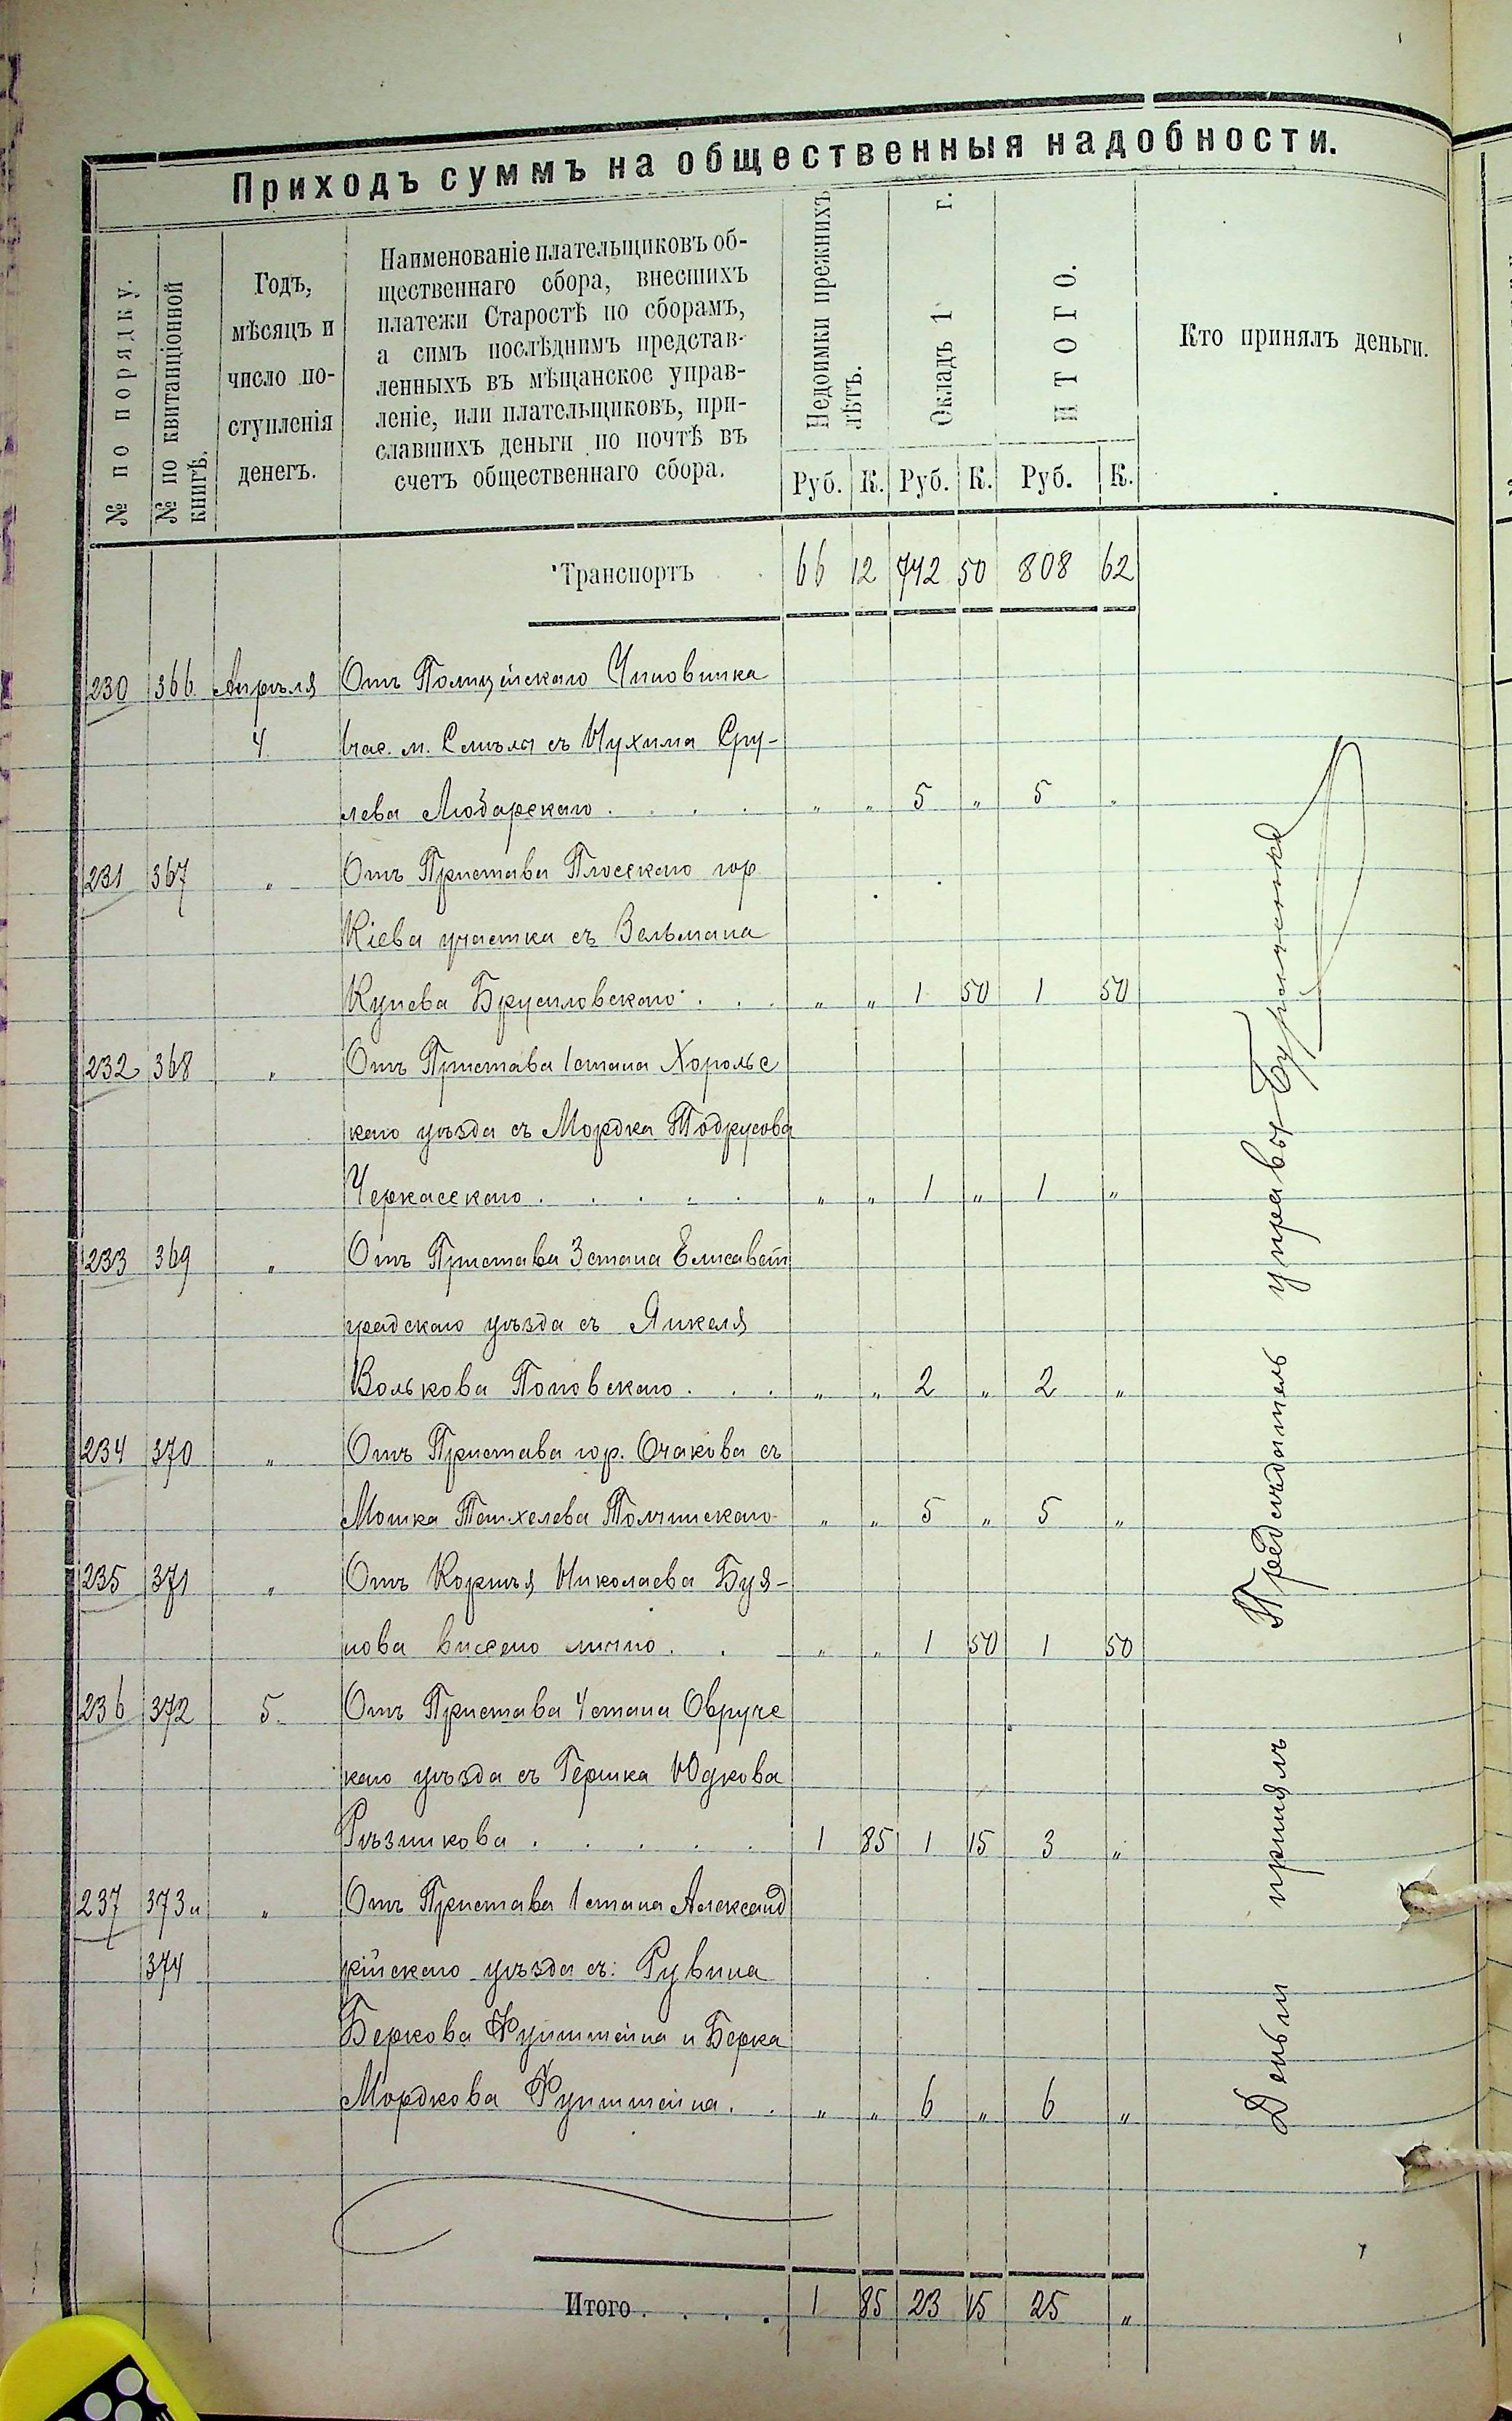 Приходъ суммъ на общественныя надобности.
№ по порядку.
№ по квитанціонной
книгѣ.
Годъ,
мѣсяцъ и
число по-
ступленія
денегъ.
Наименованіе плательщиковъ об-
щественнаго сбора, внесшихъ
платежи Старостѣ по сборамъ,
а симъ послѣднимъ представ-
ленныхъ въ мѣщанское управ-
леніе, или плательщиковъ, при-
славшихъ деньги по почтѣ въ
счетъ общественнаго сбора.
Недоимки прежнихъ
лѣтъ.
Окладъ 1 г.
ИТОГО.
Кто принялъ деньги.
Руб. К. Руб. К. Руб. К.
Транспортъ 66 12 742 50 808 62
230 366 Апрѣля Отъ Полицейскаго Чиновника
4 м. Смѣла съ Нухима Сру-
лева Любарскаго . . . . " " 5 " 5 "
231 367 " Отъ Пристава Плосскаго гор
Кіева участка съ Зельмана
Кунева Брусиловскаго . . . " " 1 50 1 50
232 368 " Отъ Пристава 1 стана Хорольс
каго уѣзда съ Мордка Тодрусова
Черкасскаго . . . . . " " 1 " 1 "
233 369 " Отъ Пристава 3 стана Елисавет
градскаго уѣзда съ Янкеля
Волькова Поповскаго . . . " " 2 " 2 "
234 370 " Отъ Пристава гор. Очакова съ
Мошка Толчинскаго " " 5 " 5 "
235 371 " Отъ Корнѣя Николаева Буя-
нова внесено лично . . " " 1 50 1 50
236 372 5. Отъ Пристава 4 стана Овручс
каго уѣзда съ Гершка Юдкова
Рѣзникова . . . . . 1 85 1 15 3 "
237 373 и " Отъ Пристава 1 стана Александ
374 рійскаго уѣзда съ: Рувина
Беркова Футштейна и Берка
Мордкова Футштейна . . " " 6 " 6 "
Итого . . . . 1 85 23 15 25 "
Деньги принялъ Предсѣдатель управы